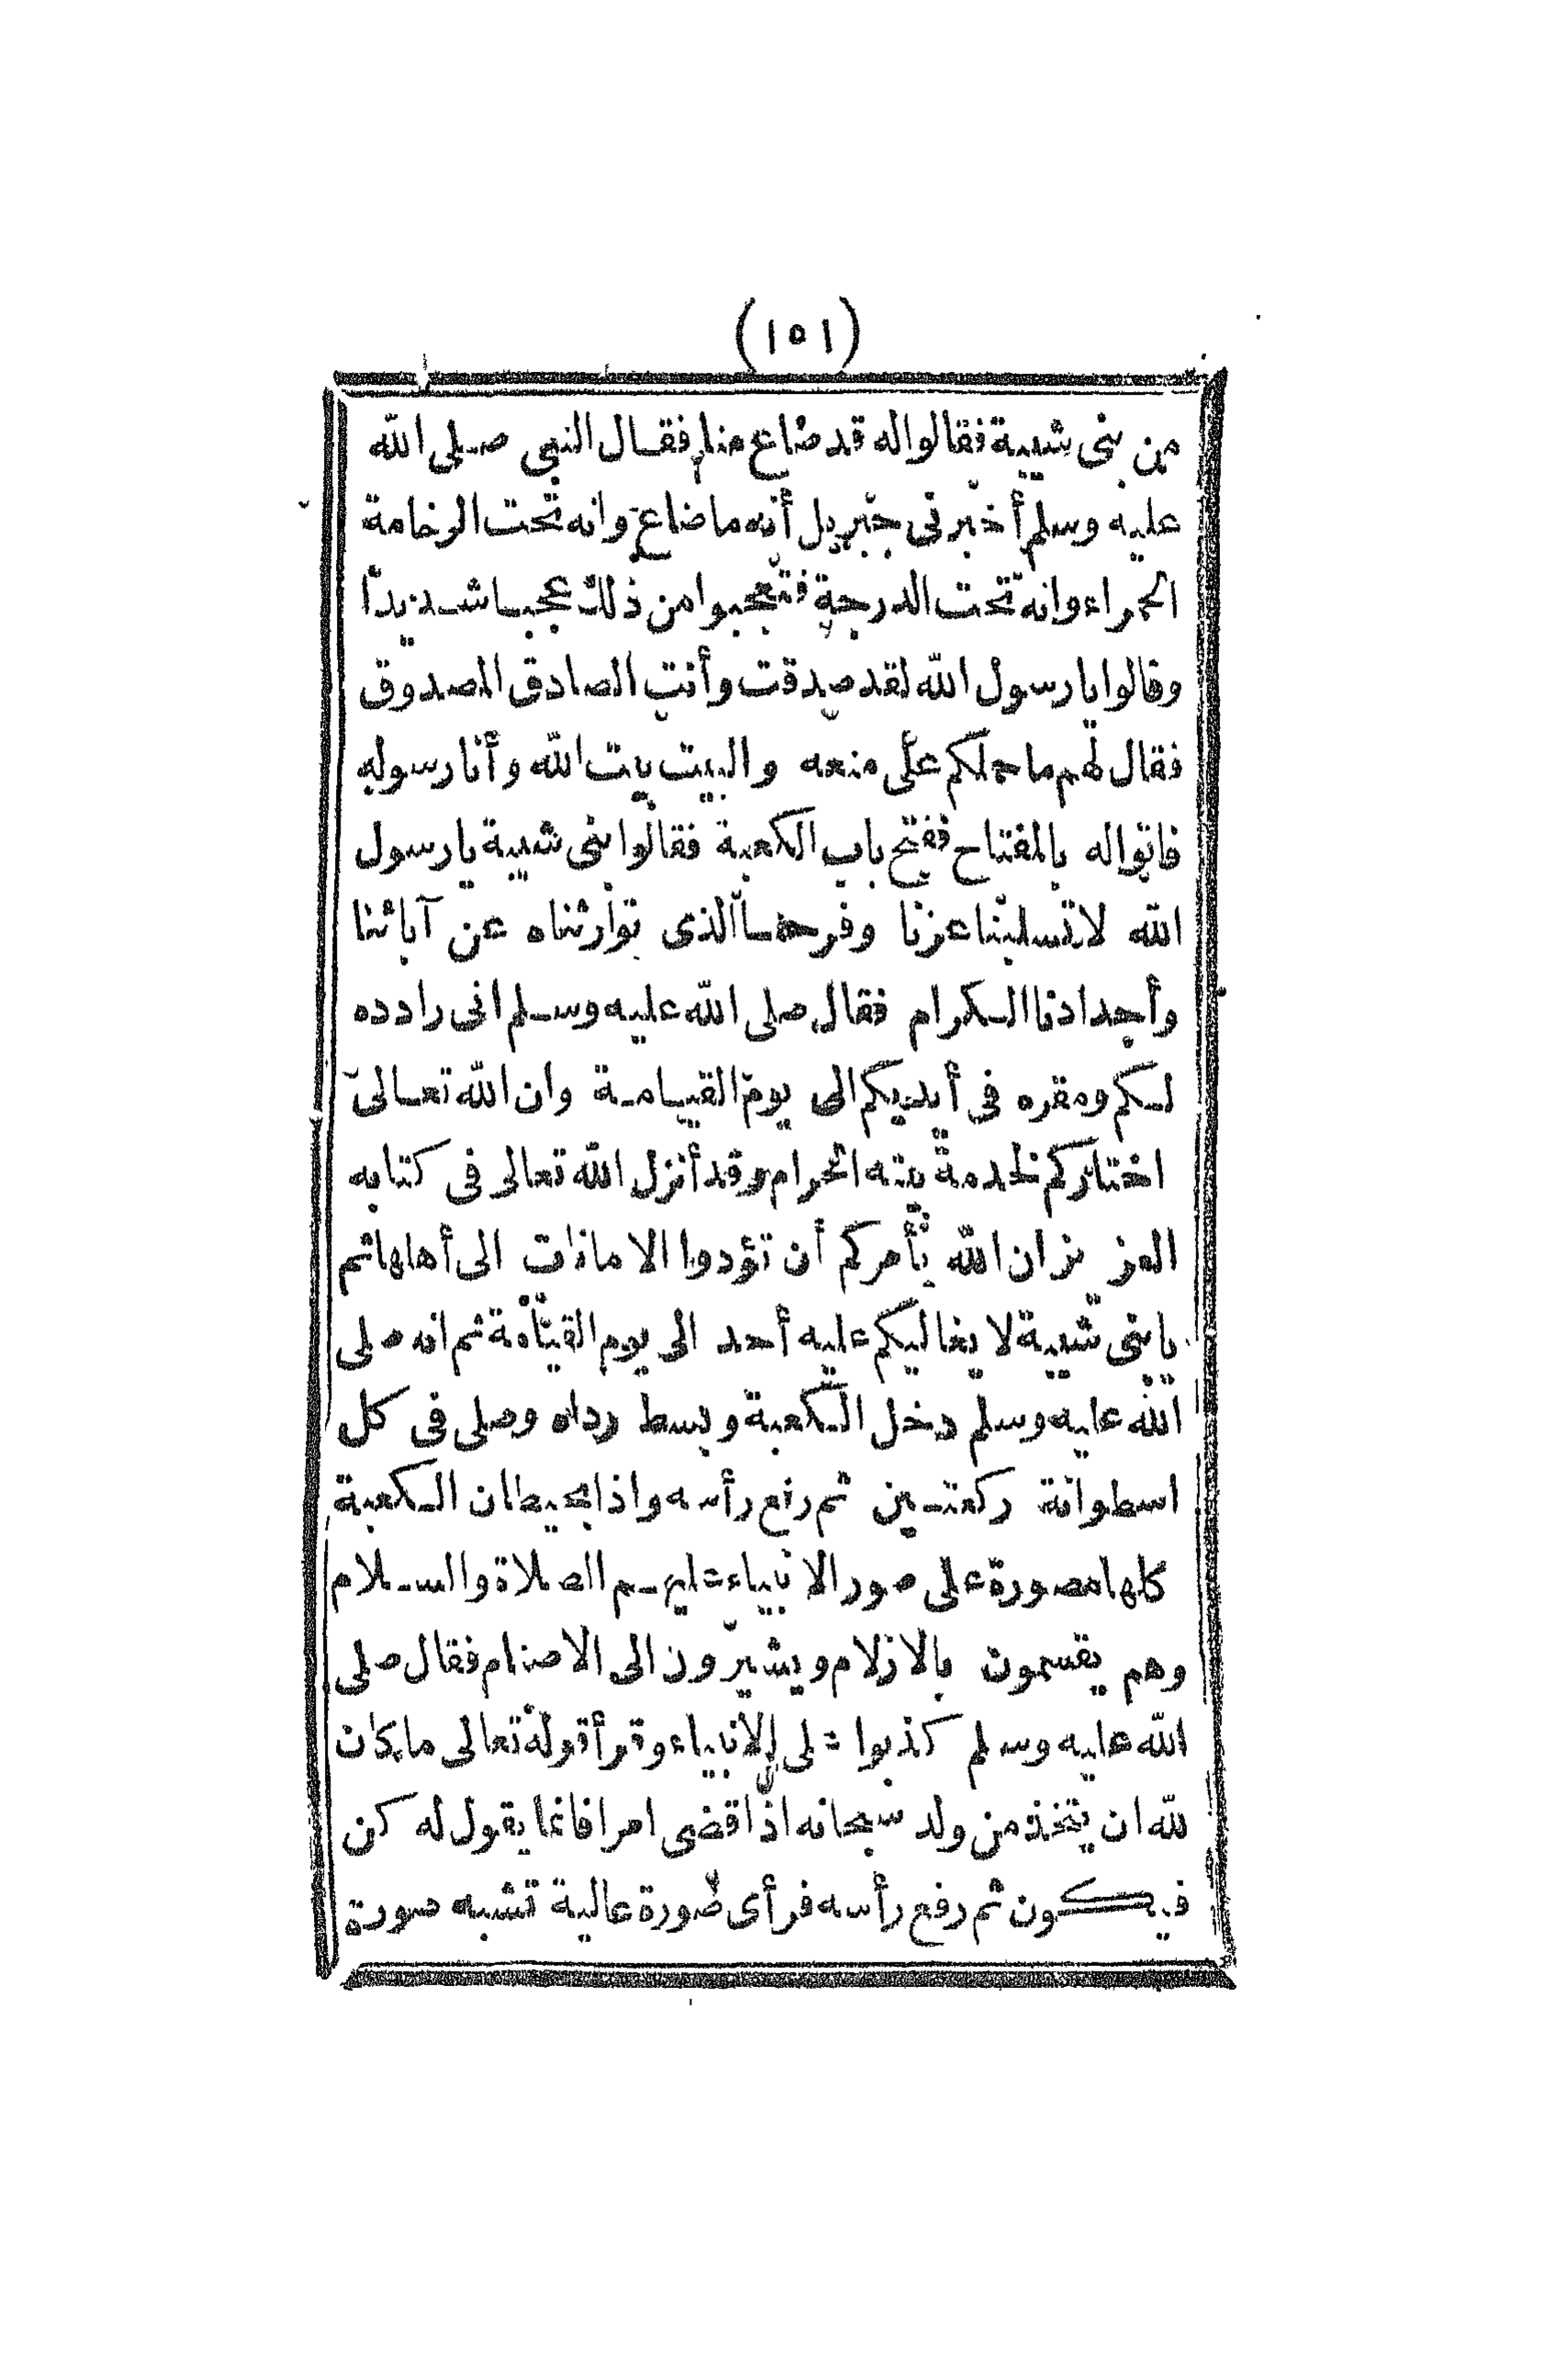 (١٥١)
من بنى شيبة فقالوا له قد ضاع منا فقال النبي صلى الله
عليه وسلم أخبرنى جبريل أنه ما ضاع وانه تحت الرخامة
الحمراء وانه تحت الدرجة فتعجبوا من ذلك عجبا شديدا
وقالوا يا رسول الله لقد صدقت وأنت الصادق المصدوق
فقال لهم ما حملكم على منعه والبيت بيت الله وأنا رسوله
فاتوا له بالمفتاح ففتح باب الكعبة فقالوا بنى شيبة يا رسول
الله لا تسلبنا عزنا وفرحنا الذى توارثناه عن آبائنا
وأجدادنا الكرام فقال صلى الله عليه وسلم انى رادده
لكم ومقره فى أيديكم الى يوم القيامة وان الله تعالى
اختاركم لخدمة بيته الحرام وقد أنزل الله تعالى فى كتابه
العزيز ان الله يأمركم أن تؤدوا الامانات الى أهلها ثم
يا بنى شيبة لا يغاليكم عليه أحد الى يوم القيامة ثم انه صلى
الله عليه وسلم دخل الكعبة وبسط رداه وصلى فى كل
اسطوانة ركعتين ثم رفع رأسه واذا بحيطان الكعبة
كلها مصورة على صور الانبياء عليهم الصلاة والسلام
وهم يقسمون بالازلام ويشيرون الى الاصنام فقال صلى
الله عليه وسلم كذبوا على الانبياء وقرأ قوله تعالى ما كان
لله ان يتخذ من ولد سبحانه اذا قضى امرا فانما يقول له كن
فيكون ثم رفع رأسه فرأى صورة عالية تشبه صورة